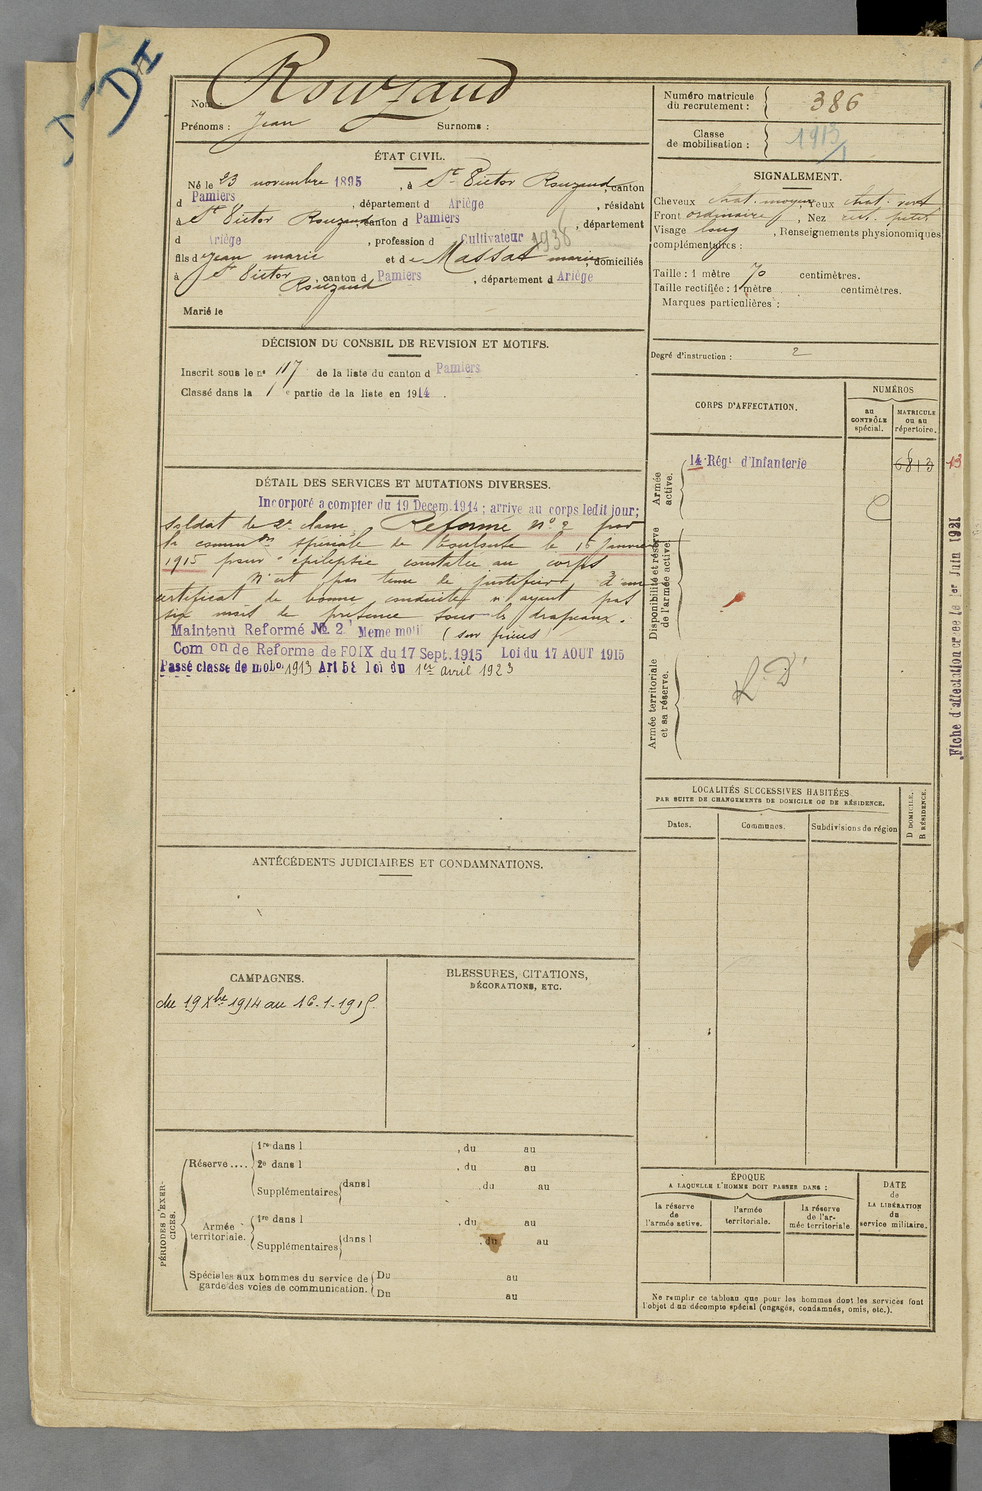 D I
Nom Rouzaud
Prénoms : Jean Surnoms :
Numéro matricule
du recrutement : 386
Classe
de mobilisation : 1913
ÉTAT CIVIL.
Né le 23 novembre 1895, à St Victor Rouzaud, canton
d Pamiers, département d Ariège, résidant
à St Victor Rouzaud, canton d Pamiers, département
d Ariège, profession d Cultivateur 1936
fils de Jean marie et de Massat marie, domiciliés
à St Victor Rouzaud, canton d Pamiers, département d Ariège
Marié le
SIGNALEMENT.
Cheveux chat. moyen, Yeux chat. vert
Front ordinaire, Nez rect. petit
Visage long, Renseignements physionomiques
complémentaires :
Taille : 1 mètre 70 centimètres.
Taille rectifiée : 1 mètre centimètres.
Marques particulières :
Degré d'instruction : 2
DÉCISION DU CONSEIL DE REVISION ET MOTIFS.
Inscrit sous le no 117 de la liste du canton d Pamiers
Classé dans la 1e partie de la liste en 1914.
CORPS D'AFFECTATION.
NUMÉROS
au
CONTRÔLE
spécial.
MATRICULE
ou au
répertoire.
Armée
active.
14 Régt d'Infanterie
6813
13
Disponibilité et réserve
de l'armée active.
Armée territoriale
et sa réserve.
Fiche d'affectation créée le 1er Juin 1921
DÉTAIL DES SERVICES ET MUTATIONS DIVERSES.
Incorporé a compter du 19 Decem. 1914 ; arrive au corps ledit jour;
soldat de 2e classe. Réformé no 2 par
la common spéciale de Toulouse le 16 Janvier
1915 pour épilepsie constatée au corps
N'est pas tenu de justifier d'un
certificat de bonne conduite n'ayant pas
six mois de présence sous les drapeaux.
Maintenu Reformé No 2 Meme motif (sur pièces
Com on de Reforme de FOIX du 17 Sept. 1915 Loi du 17 AOUT 1915
Passé classe de mobon 1913 Art 58 loi du 1er avril 1923
LOCALITÉS SUCCESSIVES HABITÉES
PAR SUITE DE CHANGEMENTS DE DOMICILE OU DE RÉSIDENCE.
Dates. Communes. Subdivisions de région
D DOMICILE.
R RÉSIDENCE.
ANTÉCÉDENTS JUDICIAIRES ET CONDAMNATIONS.
CAMPAGNES.
du 19 Xbre 1914 au 16-1-1915
BLESSURES, CITATIONS,
DÉCORATIONS, ETC.
PÉRIODES D'EXER-
CICES.
Réserve....
1re dans l , du au
2e dans l , du au
Supplémentaires dans l , du au
Armée
territoriale.
1re dans l , du au
Supplémentaires dans l , du au
Spéciales aux hommes du service de
garde des voies de communication.
Du au
Du au
ÉPOQUE
A LAQUELLE L'HOMME DOIT PASSER DANS :
la réserve
de
l'armée active.
l'armée
territoriale.
la réserve
de l'ar-
mée territoriale
DATE
de
LA LIBÉRATION
du
service militaire.
Ne remplir ce tableau que pour les hommes dont les services font
l'objet d'un décompte spécial (engagés, condamnés, omis, etc.).